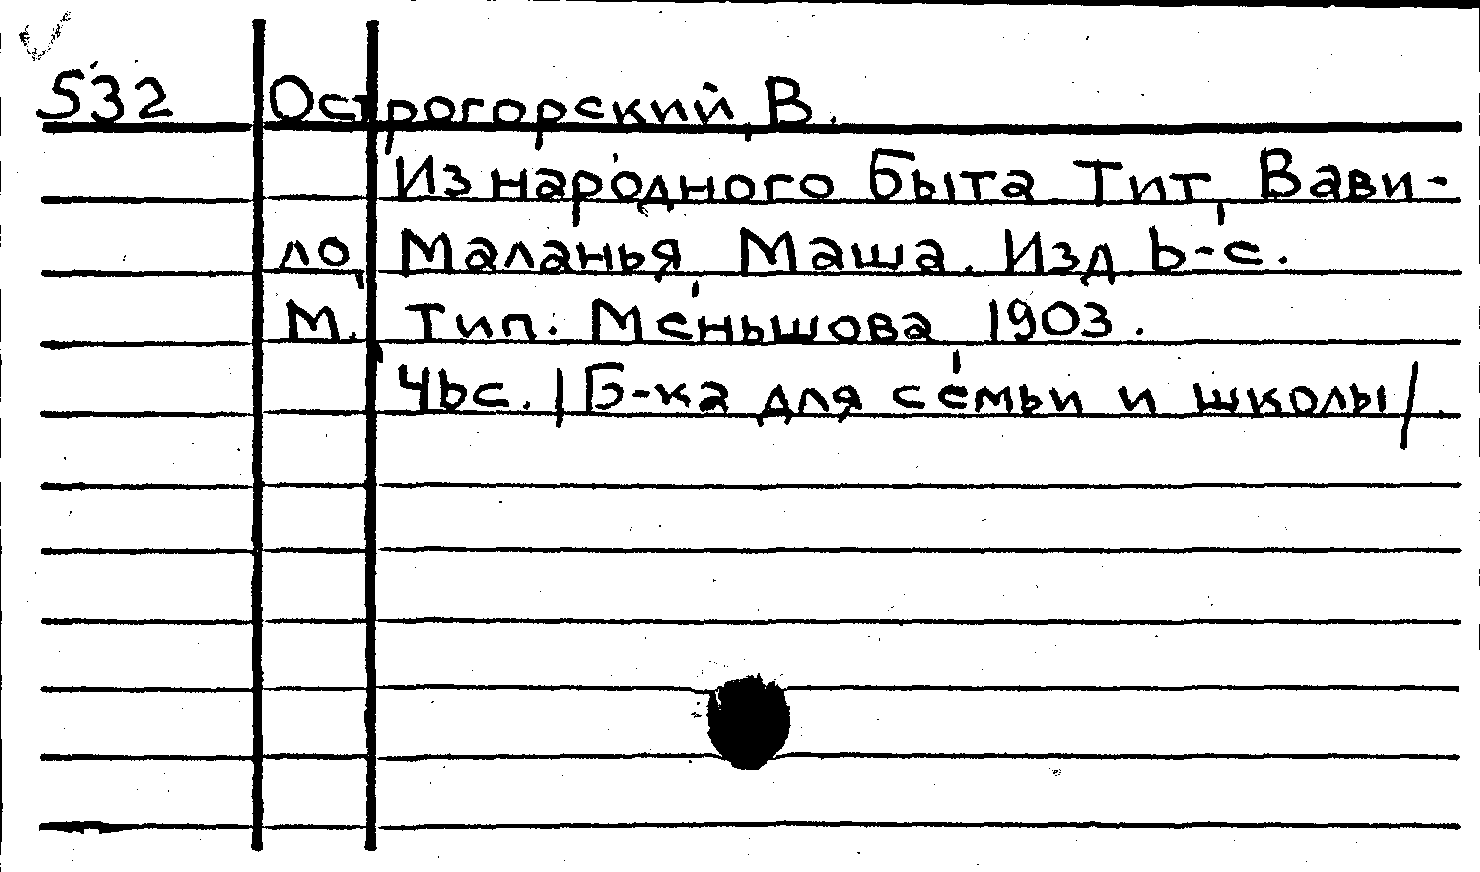 532 Острогорский, В.
Из народного быта Тит, Вави-
ло, Маланья, Маша. Изд. 6-е.
М., Тип. Меньшова, 1903.
46с. /Б-ка для семьи и школы/